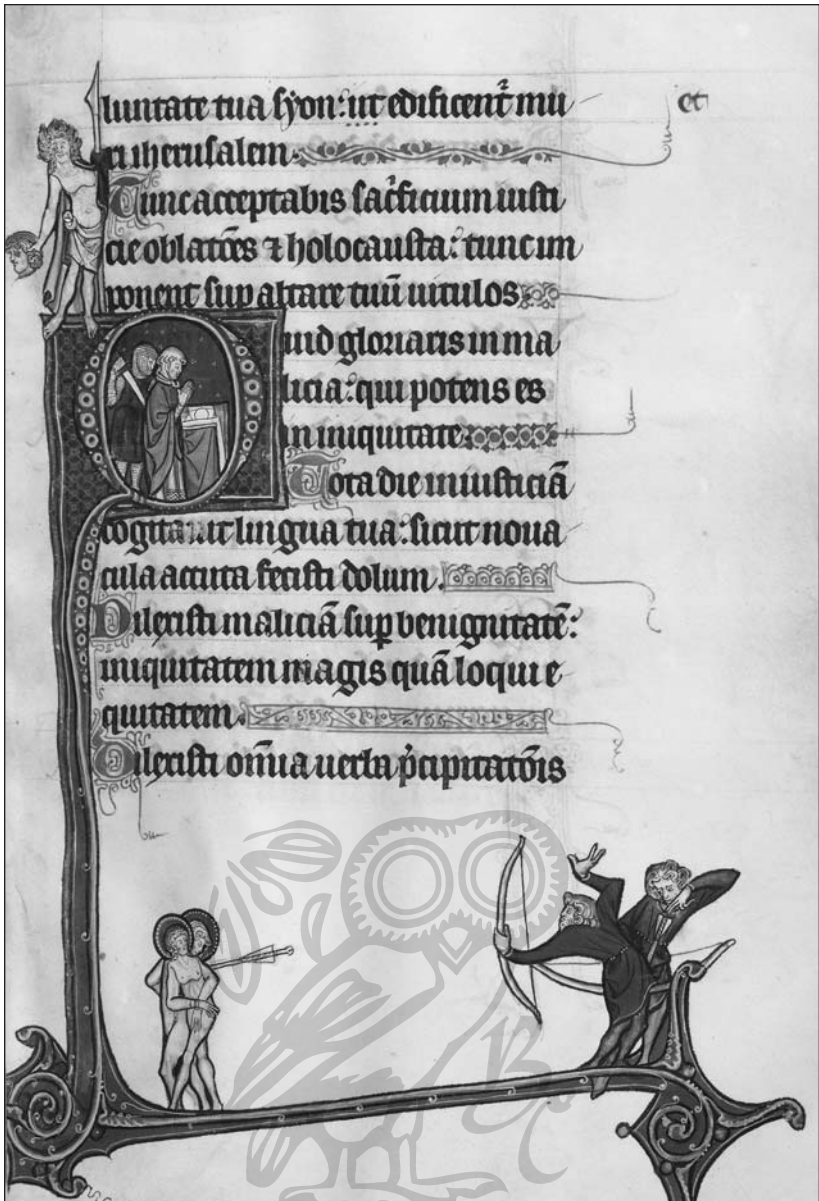 luntate tua syon: ut edificent̃ mu et
ri iherusalem.
Tunc acceptabis sac̃ficium iusti
cie oblatõẽs ⁊ holocausta: tunc im
ponent sup altare tuũ uitulos
Quid gloriaris in ma
licia: qui potens es
in iniquitate
Tota die iniusticiã
cogitauit lingua tua: sicut noua
cula accuta fecisti dolum.
Dilexisti maliciã sup benignitatẽ:
iniquitatem magis quã loqui e
quitatem.
Dilexisti om̃ia uerba p̃cipitatõis